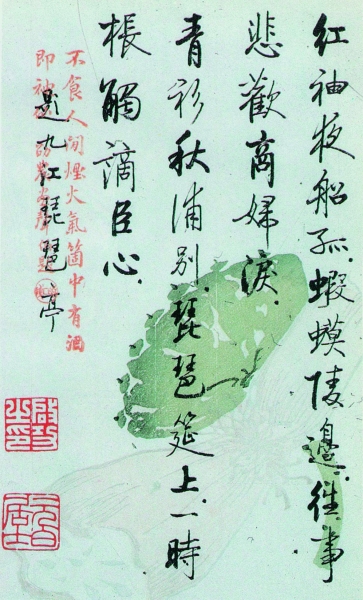 紅袖夜船孤.蝦蟆陵邊.往事
悲歡商婦淚.
青衫秋浦別.琵琶筵上.一時
棖觸謫臣心.
題九江琵琶亭
不食人間煙火氣箇中有酒
即神